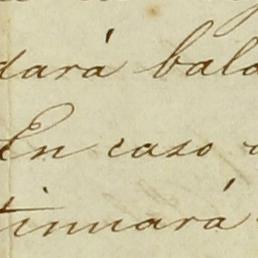 dará bala
En caso
tinuará